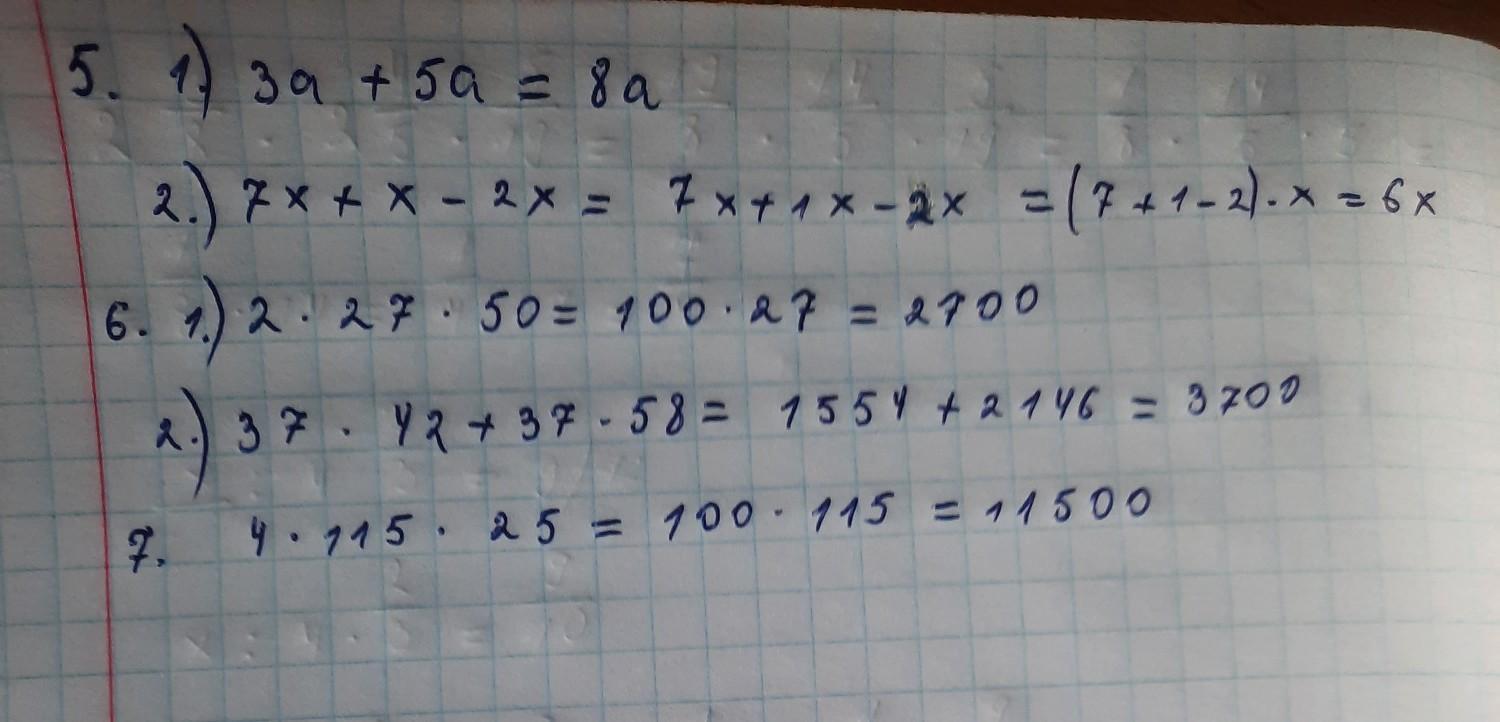 5. 1.) 3a + 5a = 8a
2.) 7x + x - 2x = 7x + 1x - 2x = (7 + 1 - 2) · x = 6x
6. 1.) 2 · 27 · 50 = 100 · 27 = 2700
2.) 37 · 42 + 37 · 58 = 1554 + 2146 = 3700
7. 4 · 115 · 25 = 100 · 115 = 11500